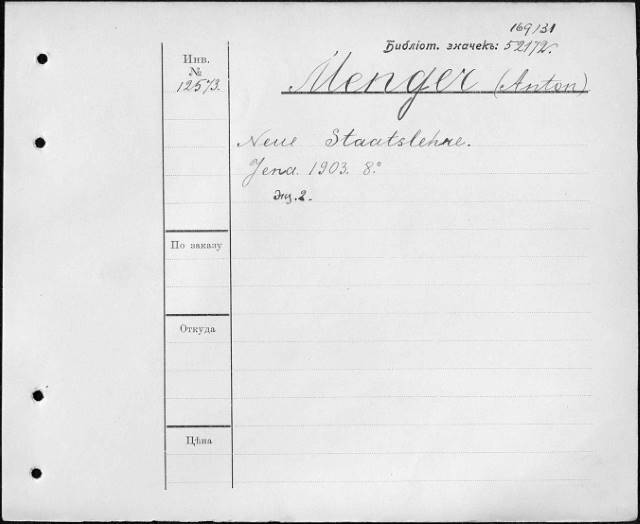 169/31
Библіот. значекъ: 52172.
Инв.
№
12573.
Menger (Anton)
Neue Staatslehre.
Jena. 1903. 8°
Эkз. 2.
По заказу
Откуда
Цѣна